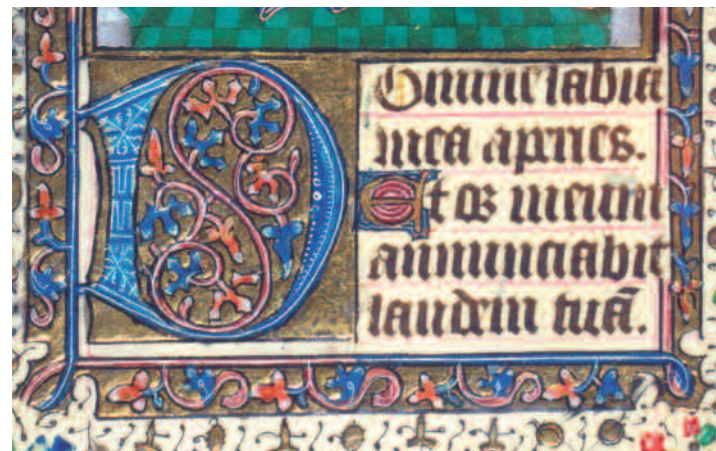 DOmine labia
mea aperies.
Et os meum
annunciabit
laudem tuā.